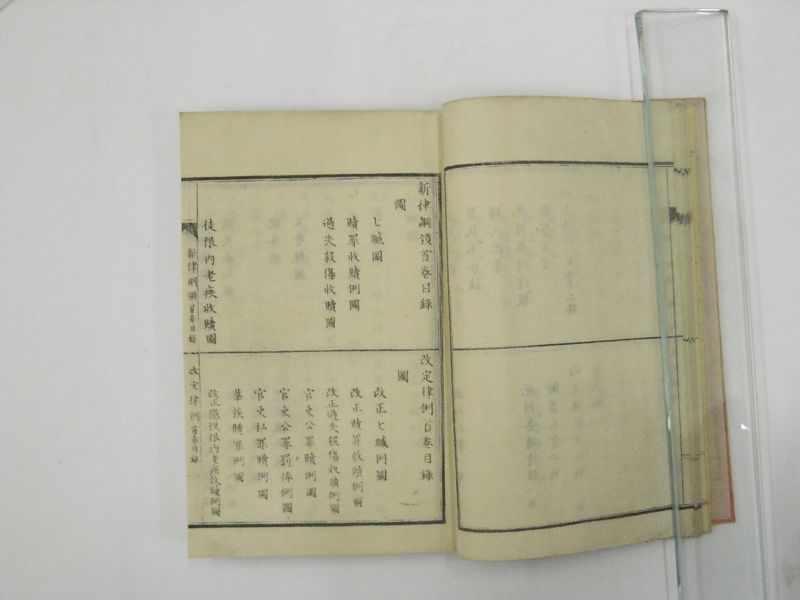 新律綱領首卷目錄
圖
七贓圖
贖罪收贖例圖
過失殺傷收贖圖
徒限内老疾收贖圖
改定律例首卷目錄
圖
改正七贓例圖
改正贖罪收贖例圖
改正過失殺傷收贖例圖
官吏公罪贖例圖
官吏公罪罰俸例圖
官吏私罪贖例圖
華族贖罪例圖
改正懲役限内老疾收贖例圖
新律綱領 首卷目錄
改定律例 首卷目錄